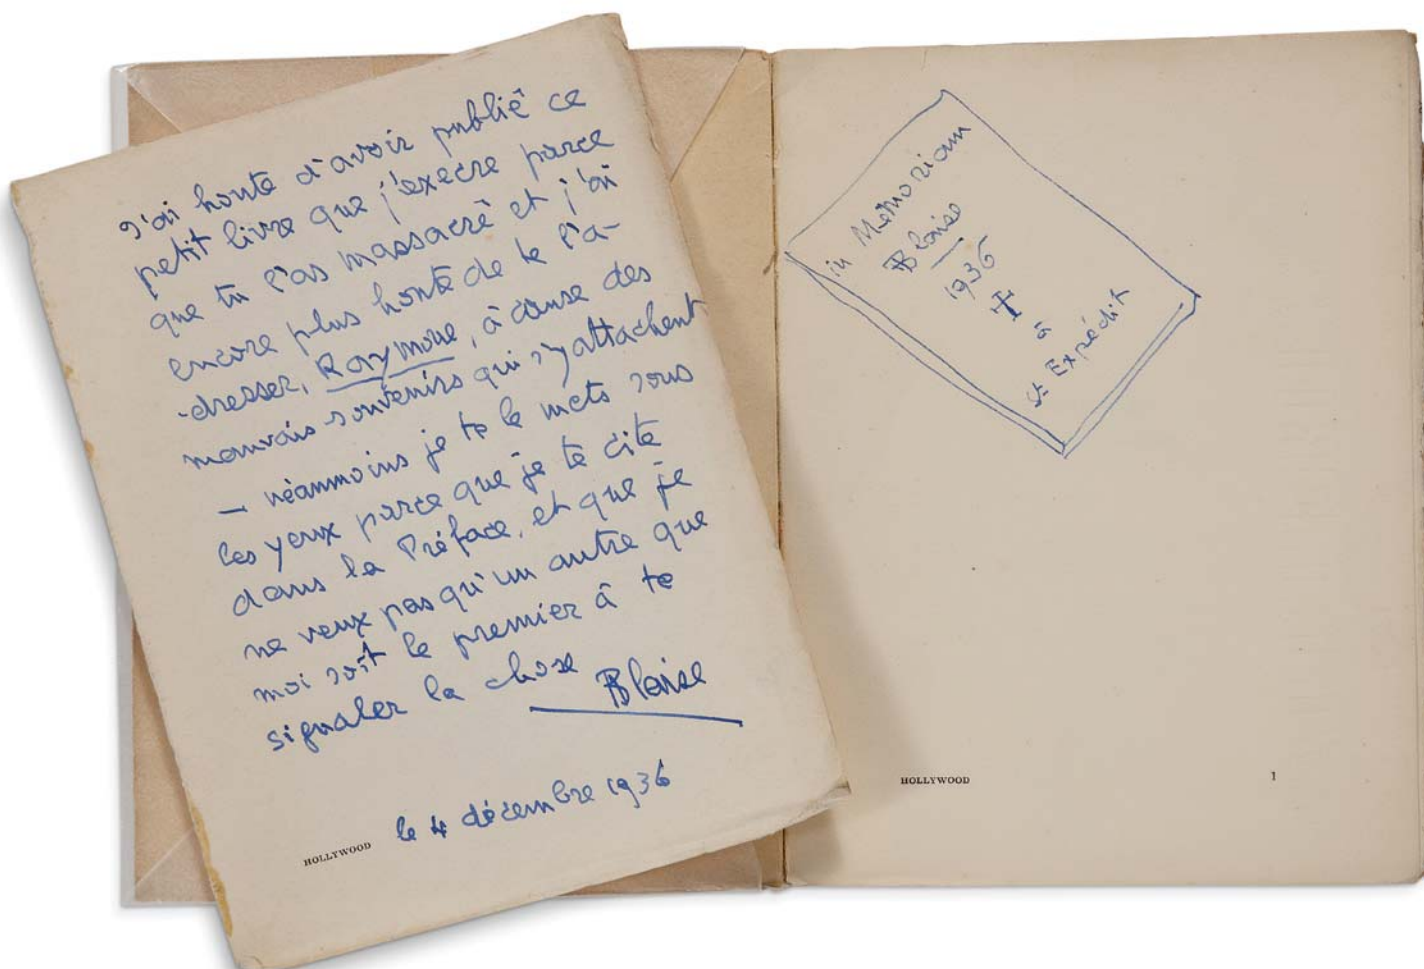 J'ai honte d'avoir publié ce
petit livre que j'exècre parce
que tu l'as massacré et j'ai
encore plus honte de te l'a-
-dresser, Raymone, à cause des
mauvais souvenirs qui s'y attachent
— néanmoins je te le mets sous
les yeux parce que je te cite
dans la Préface, et que je
ne veux pas qu'un autre que
moi soit le premier à te
signaler la chose
Blaise
le 4 décembre 1936
HOLLYWOOD
in Memoriam
Blaise
1936
à
St Expédit
HOLLYWOOD 1